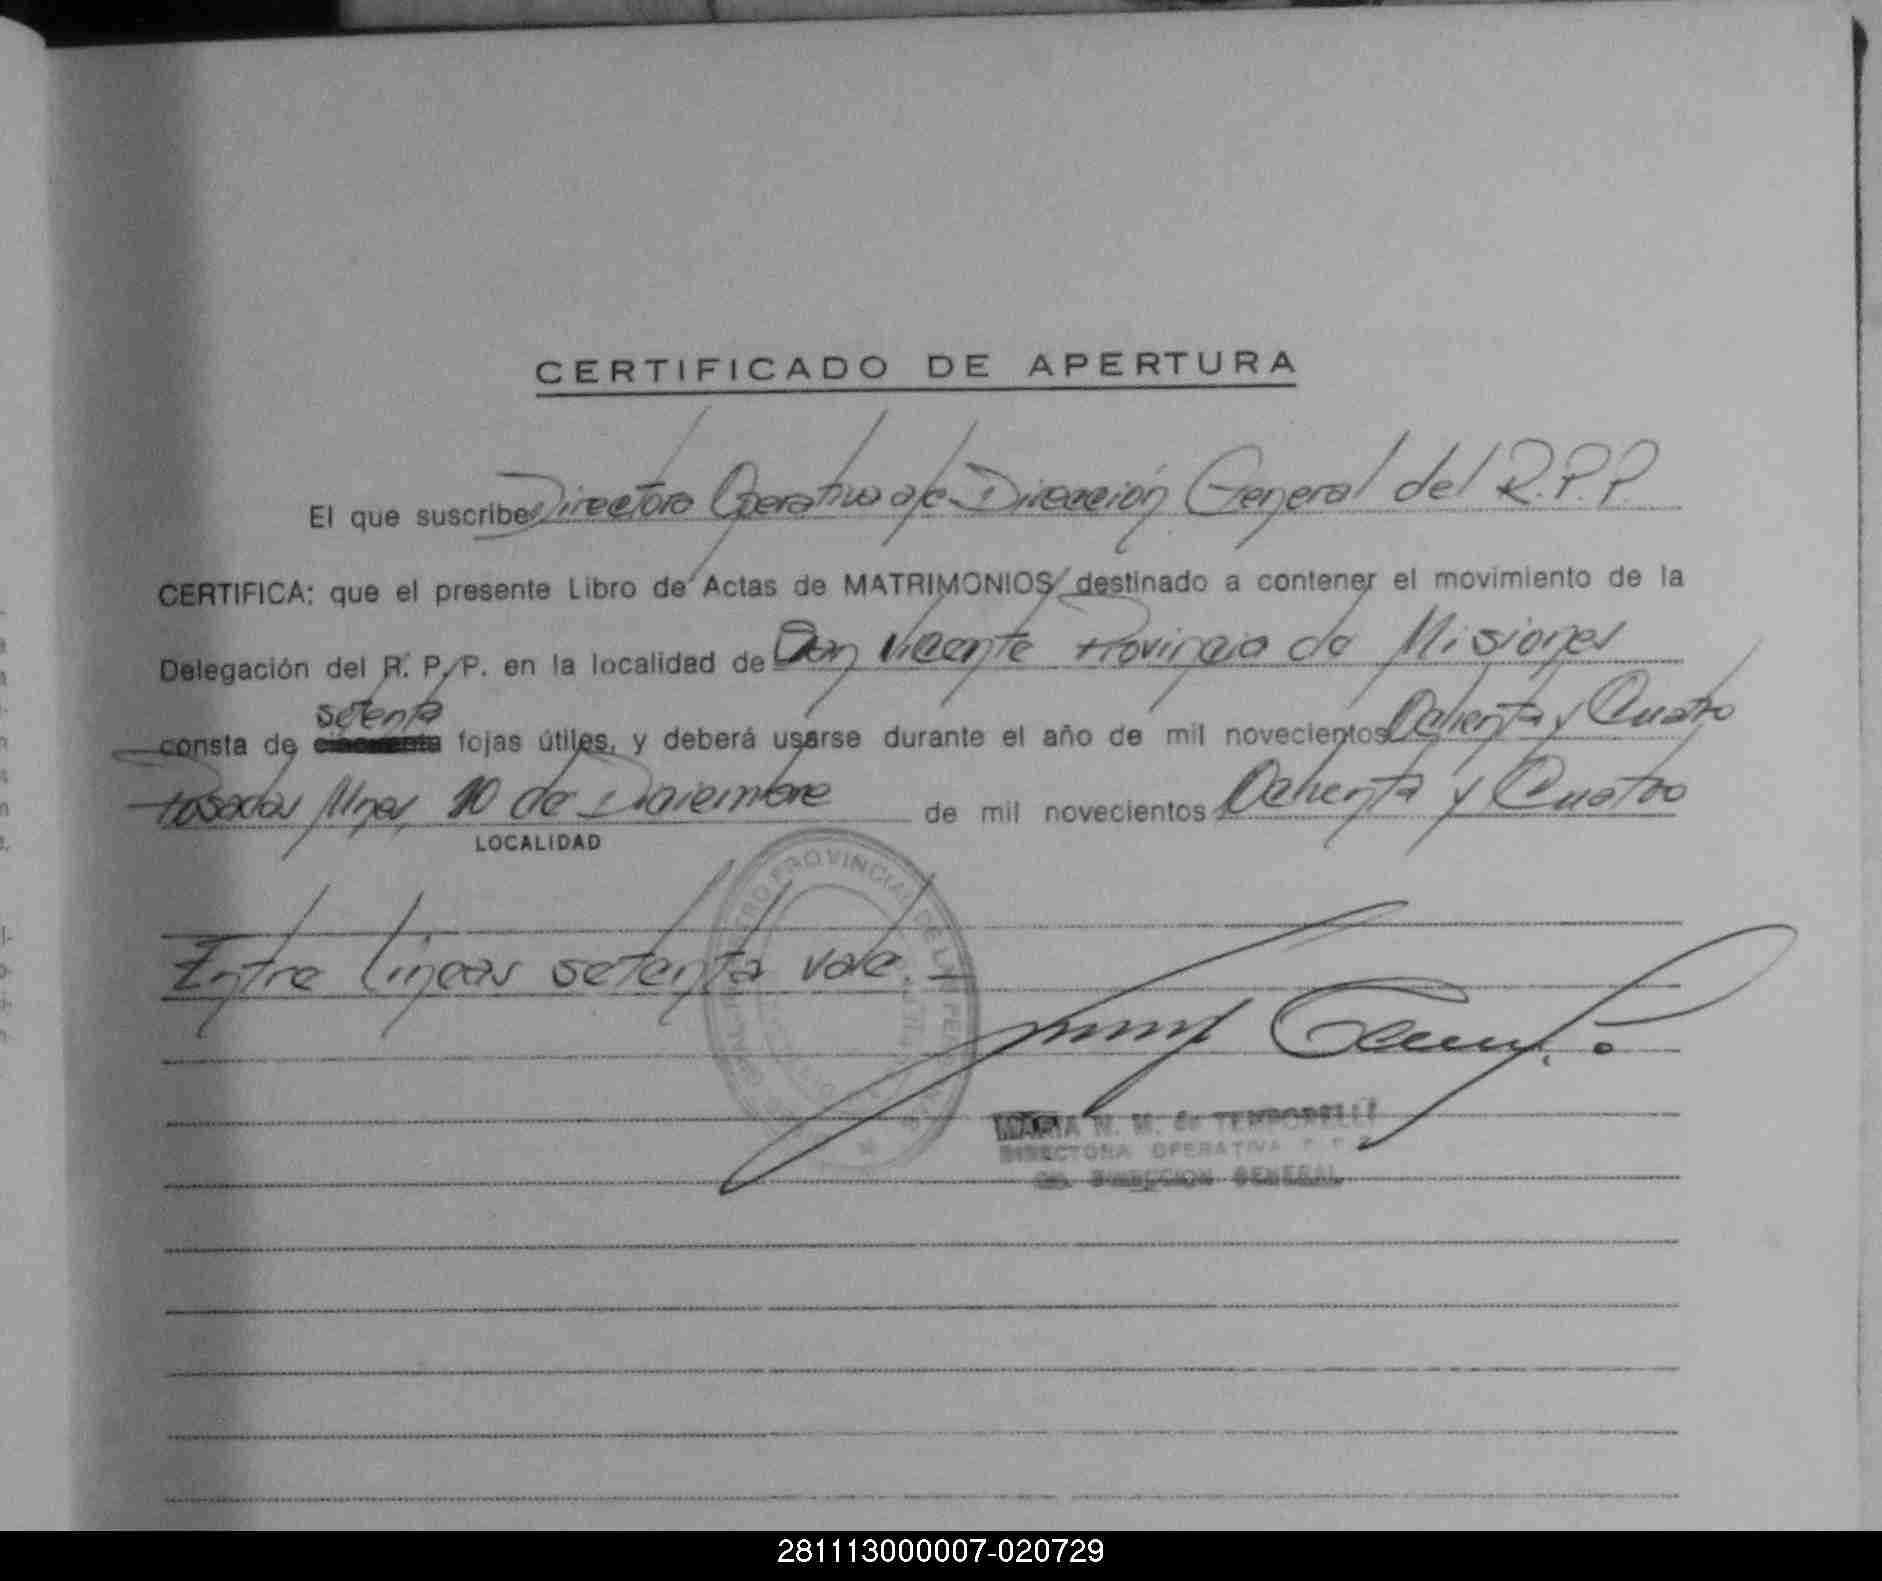 CERTIFICADO DE APERTURA
El que suscribe Directora Operativa a/c Dirección General del R.P.P.
CERTIFICA: que el presente Libro de Actas de MATRIMONIOS destinado a contener el movimiento de la
Delegación del R. P. P. en la localidad de San Vicente Provincia de Misiones
setenta
consta de cincuenta fojas útiles, y deberá usarse durante el año de mil novecientos Ochenta y Cuatro
Posadas Mnes, 10 de Diciembre de mil novecientos Ochenta y Cuatro
LOCALIDAD
Entre líneas setenta vale.
PROVINCIAL DE LAS
MARIA N. M. de TEMPORELLI
DIRECTORA OPERATIVA
DIRECCION GENERAL
281113000007-020729